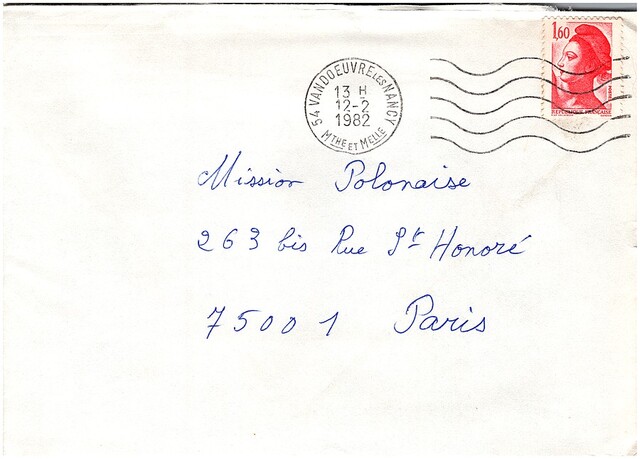 1,60
REPUBLIQUE FRANCAISE
54 VANDOEUVRE LES NANCY
13 H
12-2
1982
MTHE ET MELLE
Mission Polonaise
263 bis Rue St Honoré
75001 Paris